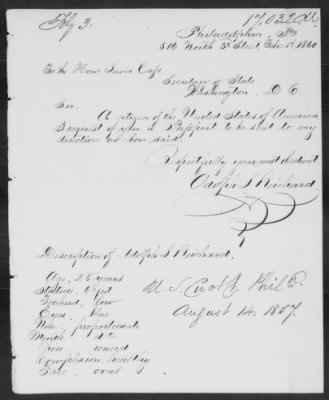 Feby 3. 17,032
Philadelphia, Pa
516 North 5th Street, Feby 1st 1860
To the Hon. Lewis Cass
Secretary of State
Washington, D. C.
Sir.
A citizen of the United States of America,
I request of you a Passport to be sent to my
direction as above said.
Respectfully yours most obedient
Adolph S Reichard
Description of Adolph S Reichard,
Age, 25 years
Stature, 6 feet
Forehead, low
Eyes, blue
Nose, proportionate
Mouth, do
Chin, round
Complexion, healthy
Face, oval
U. S. Court Phila.
August 14, 1857.